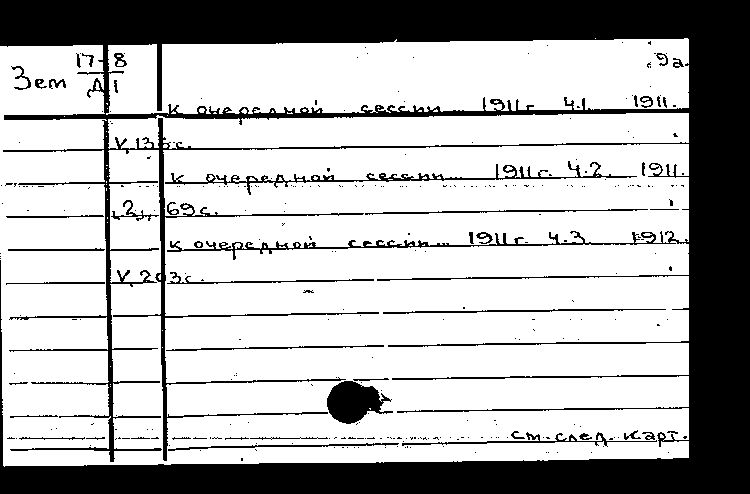 17-8 9а.
Зем Д1
к очередной сессии... 1911г. Ч.1. 1911.
V, 136с.
к очередной сессии... 1911г. Ч.2. 1911.
,2,, 69с.
к очередной сессии... 1911г. Ч.3. 1912.
V, 203с.
см. след. карт.